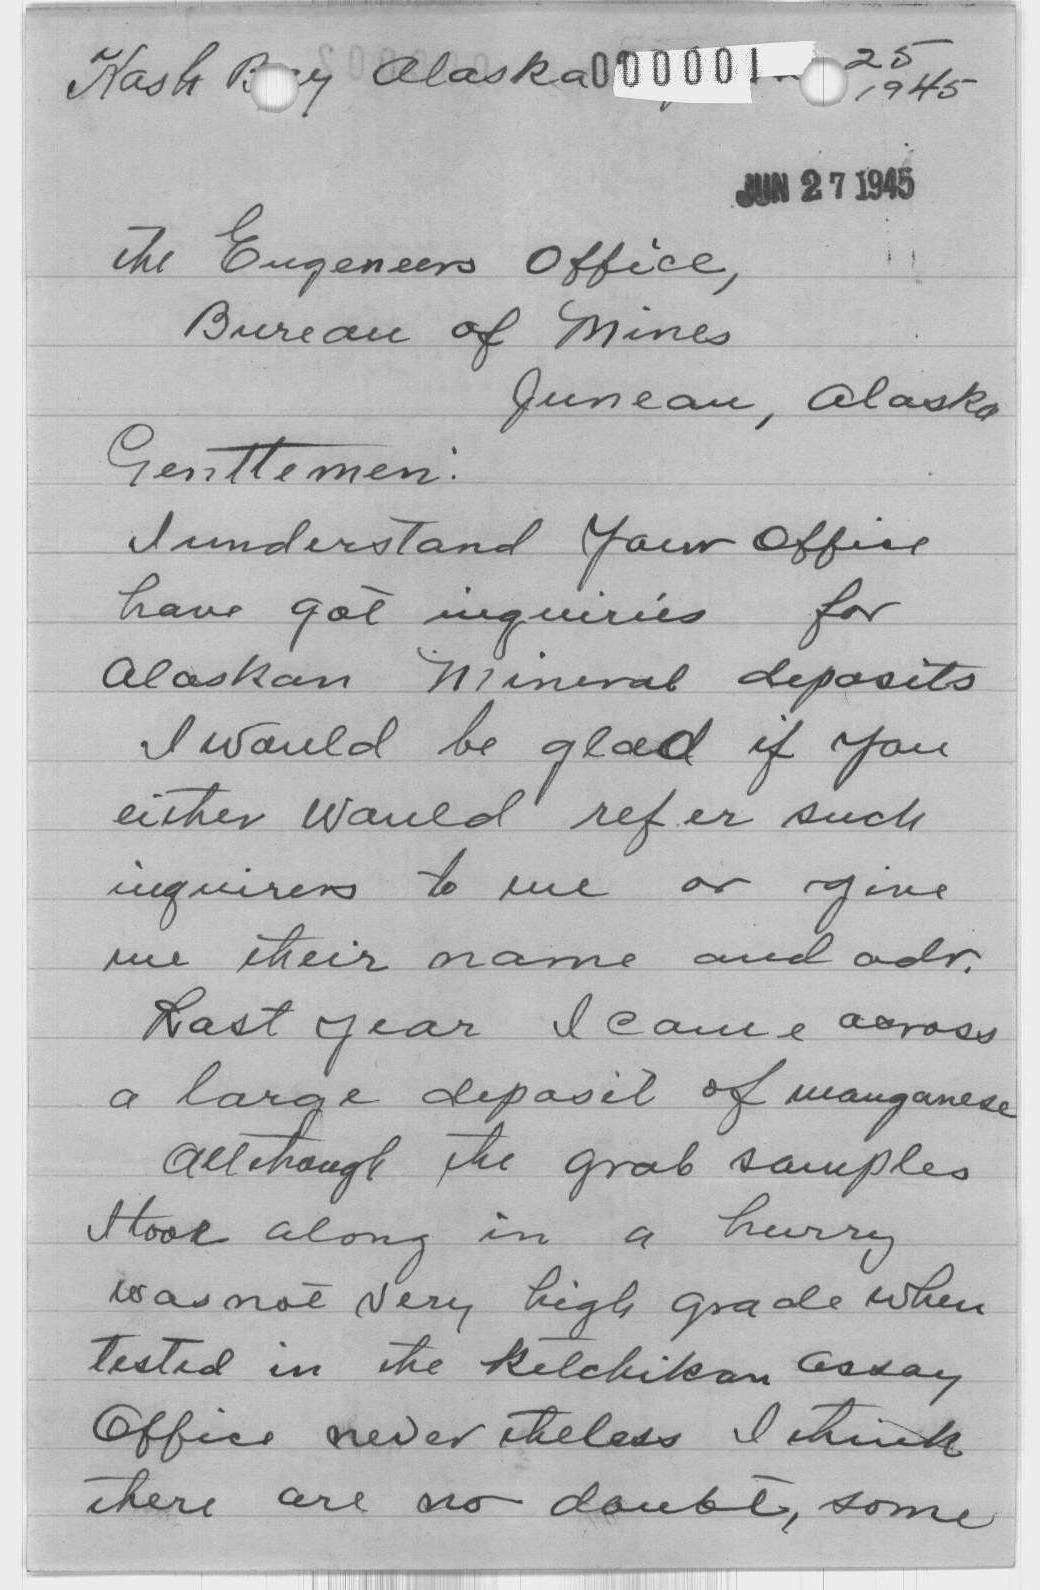 Kash Bay Alaska 000001 25
1945
JUN 27 1945
The Eugeneers Office,
Bureau of Mines
Juneau, Alaska
Genttemen:
I understand Your Office
have got inquiries for
Alaskan Mineral deposits
I would be glad if you
either Would refer such
inquirers to me or give
me their name and adr.
Last year I came across
a large deposit of manganese
Allthough the grab samples
I took along in a hurry
was not very high grade when
tested in the Ketchikan assay
Office never theless I think
there are no doubt, some